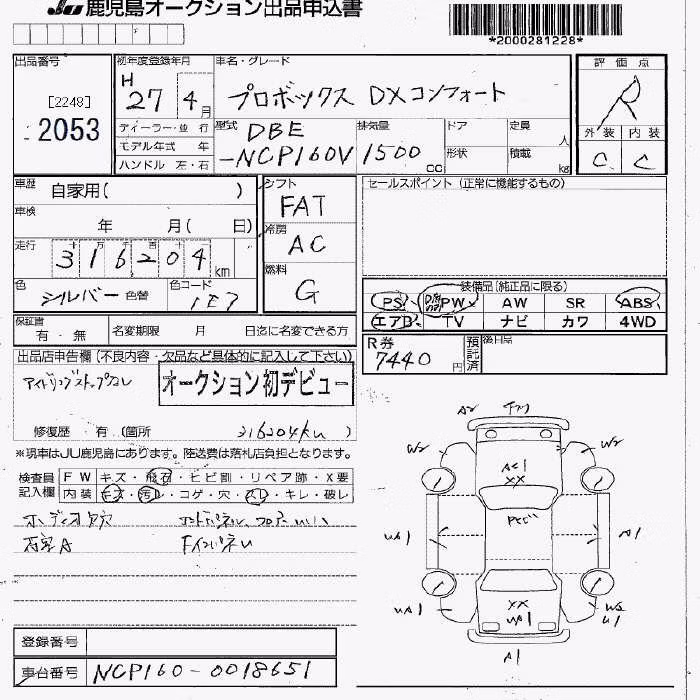 JU 鹿児島オークション出品申込書
*2000281228*
出品番号
[2248]
2053
初年度登録年月
H 27 4月
車名・グレード
プロボックス DXコンフォート
評価点
R
外装 内装
C C
ディーラー・並行
モデル年式 年
ハンドル 左・右
型式
DBE
-NCP160V
排気量
1500 cc
ドア
形状
定員 人
積載 kg
車歴 自家用( )
車検 年 月( 日)
走行 十 万 千 百 十
316204 km
色 シルバー 色替
色コード 1E7
シフト
FAT
冷房
AC
燃料
G
セールスポイント (正常に機能するもの)
装備品(純正品に限る)
PS PW AW SR ABS
エアB TV ナビ カワ 4WD
保証書
有・無
名変期限 月 日迄に名変できる方
R券
7440円
預託済
後日品
出品店申告欄(不良内容・欠品など具体的に記入して下さい)
アイドリングストップなし
オークション初デビュー
修復歴 有 (箇所 316204km )
※現車はJU鹿児島にあります。陸送費は落札店負担となります。
検査員記入欄
FW キズ・飛石・ヒビ割・リペア跡・X要
内装 キズ・汚レ・コゲ・穴・スレ・キレ・破レ
A2
W2 W2
AC1
XX
A1
XX
A1
登録番号
車台番号 NCP160-0018651